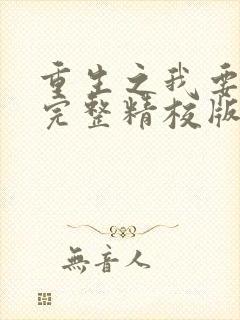 重生之我要
完整精校版
無音人